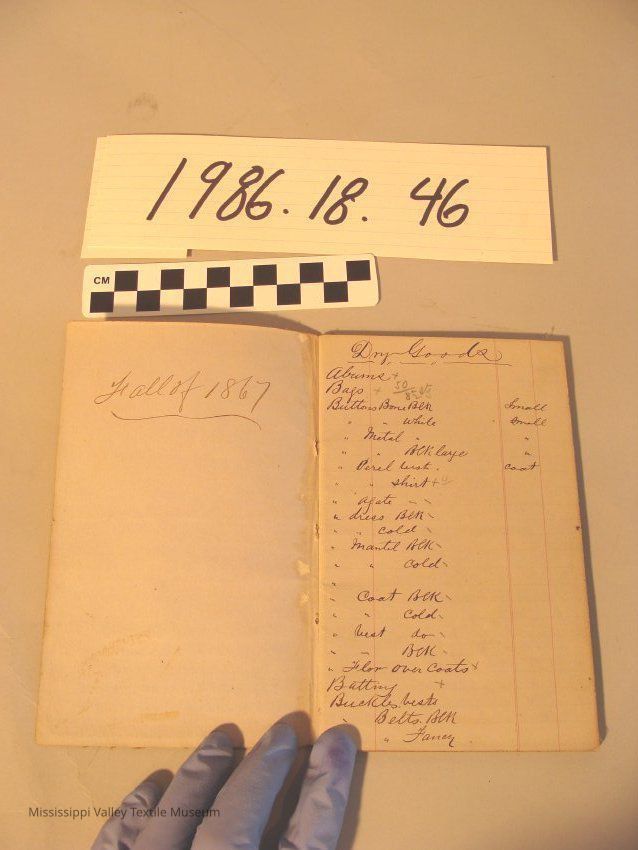 1986.18.46
CM
Fall of 1867
Dry Goods
Abums +
Bags + 50
Buttons Bone Blk Small
" " White " Small
" Metal " "
" " Blk large "
" Perel vest. Coat
" " shirt +
" agate " "
" dress Blk
" " Cold
" Mantil Blk
" " Cold
"
" Coat Blk
" " Cold
" Vest do
" " Blk
" Flor over Coats +
Batting +
Buckles vests
" Belts. Blk
" Fancy
Mississippi Valley Textile Museum